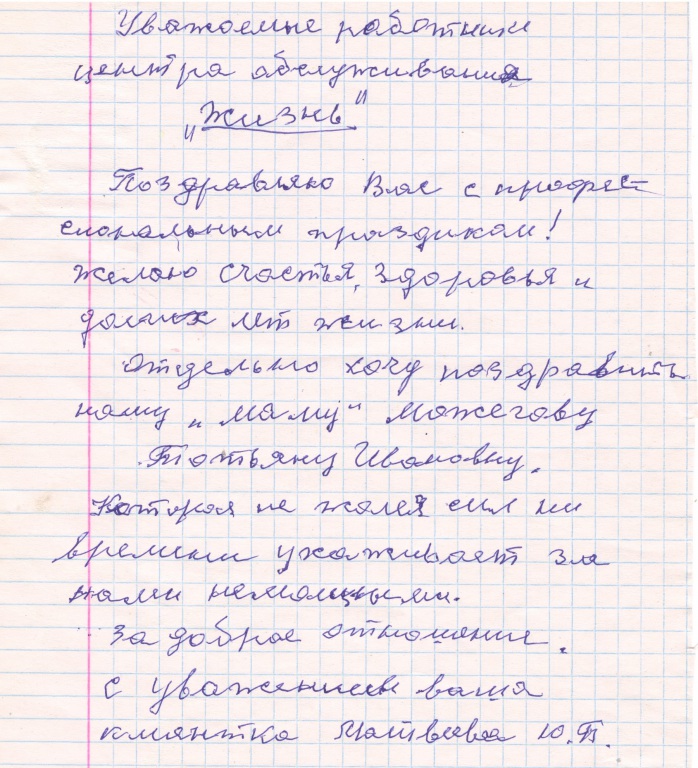 Уважаемые работники
центра обслуживания
"Жизнь"
Поздравляю Вас с профес
сиональным праздиком!
желаю счастья, здоровья и
долгих лет жизни.
Отдельно хочу поздравить
нашу "маму" Можегову
Татьяну Ивановну.
Которая не жалея сил ни
времени ухаживает за
нами немощными.
За доброе отношение.
с уважением ваша
клиянтка Матвеева Ю.П.